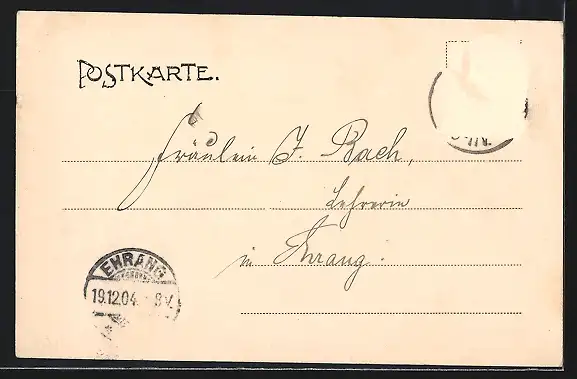 POSTKARTE.
Fräulein J. Bach,
Lehrerin
in Ehrang.
EHRANG
19.12.04. 8V.